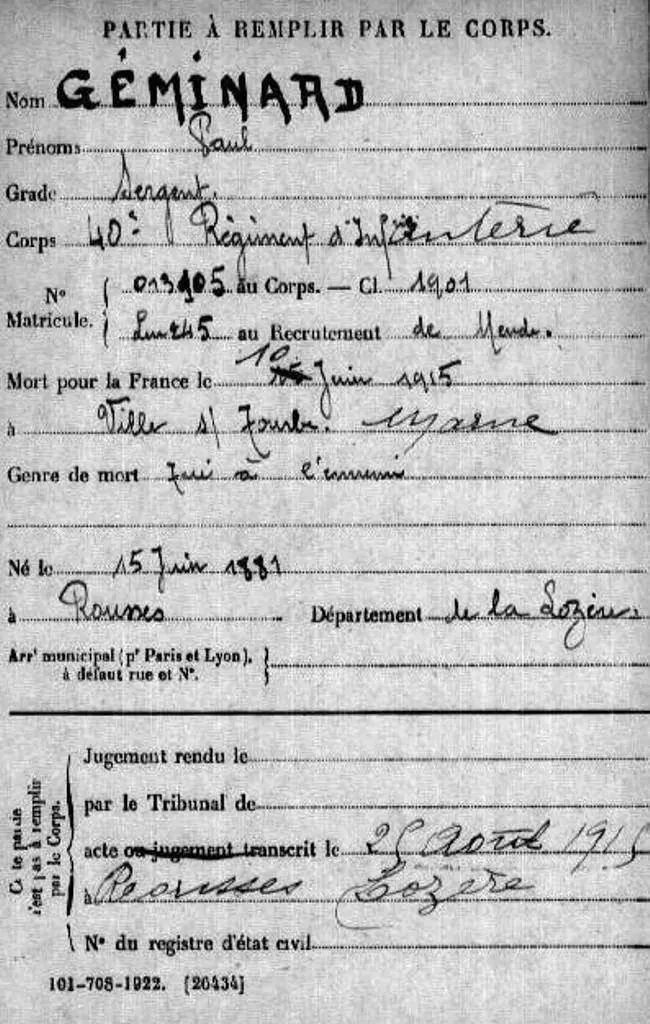 PARTIE À REMPLIR PAR LE CORPS.
Nom GÉMINARD
Prénoms Paul
Grade Sergent.
Corps 40e Régiment d'Infanterie
N° Matricule. { 013905 au Corps. — Cl. 1901
245 au Recrutement de Mende.
Mort pour la France le 10 Juin 1915
à Ville s/ Tourbe. Marne
Genre de mort Tué à l'ennemi
Né le 15 Juin 1881
à Rousses Département de la Lozère.
Arrt municipal (pr Paris et Lyon), }
à défaut rue et N°.
Jugement rendu le
par le Tribunal de
acte ou jugement transcrit le 25 Août 1915
à Rousses Lozère
N° du registre d'état civil
Cette partie n'est pas à remplir par le Corps.
101-708-1922. [26434]